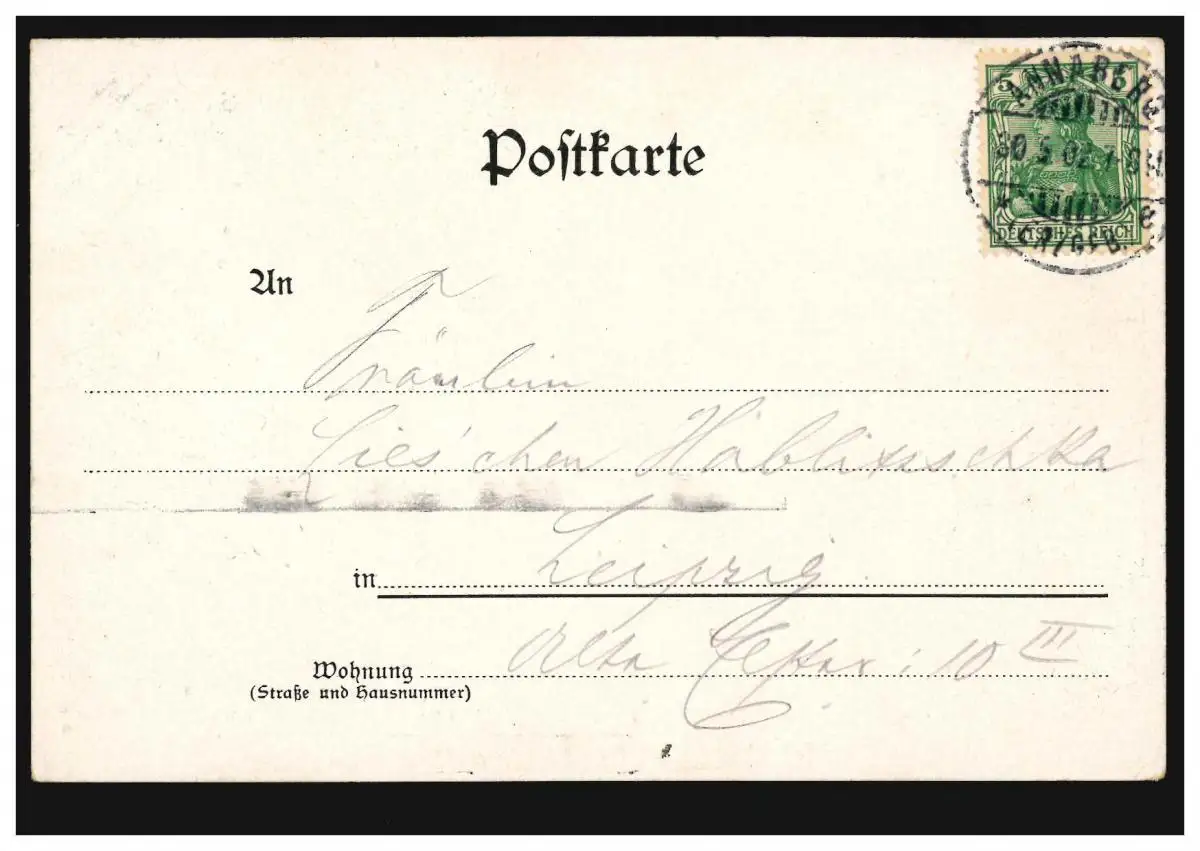 Postkarte
5
ANNABERG
30 5 02 7-8 N
ERZGEB.
DEUTSCHES REICH
An
Fräulein
Lies'chen
in Leipzig
Wohnung 10 III
(Straße und Hausnummer)